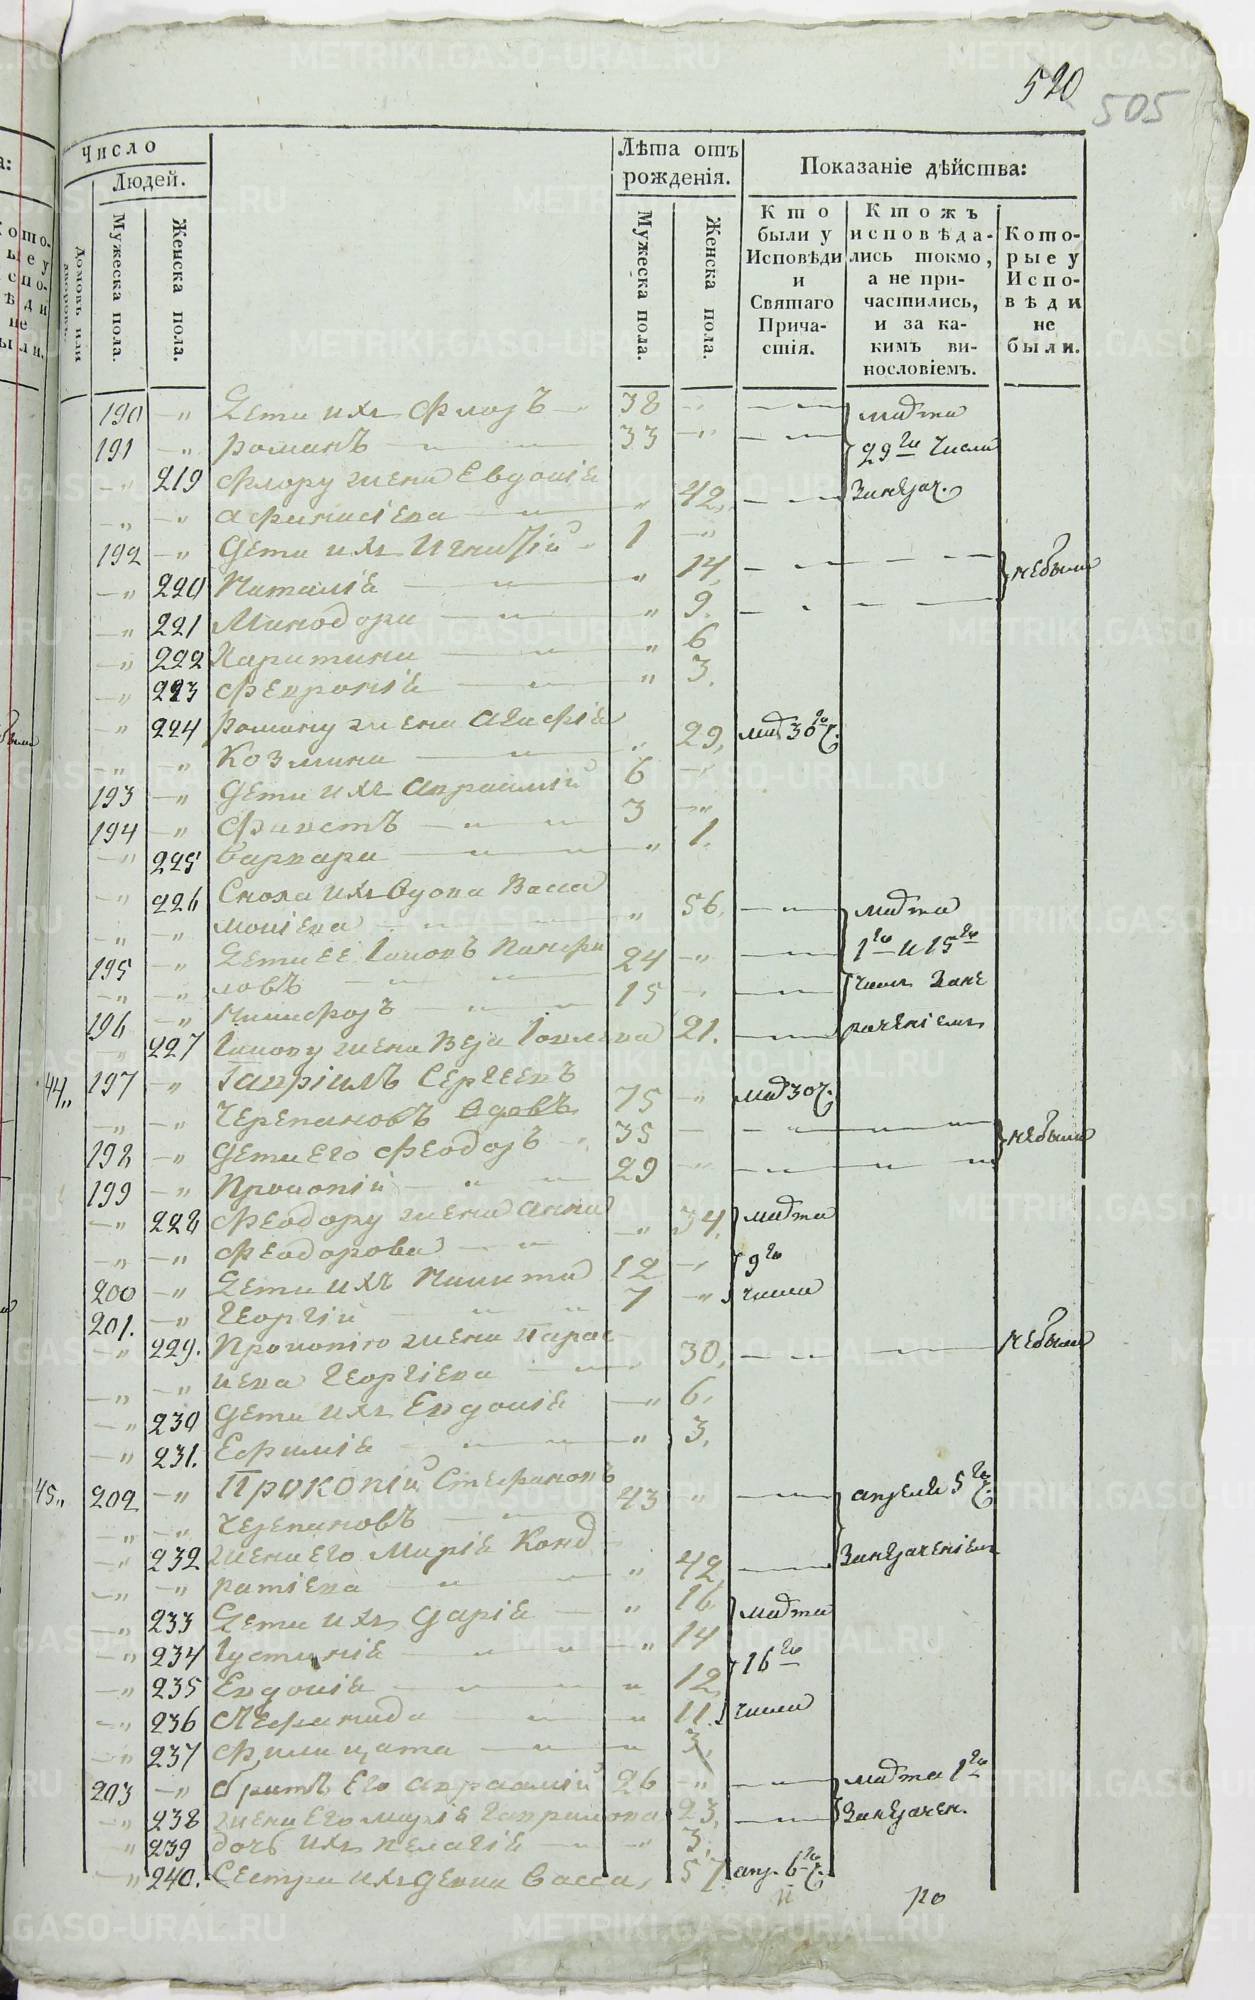 520
505
Число
Людей.
Домовъ или дворовъ.
Мужеска пола.
Женска пола.
Лѣта отъ рожденія.
Мужеска пола.
Женска пола.
Показаніе дѣйства:
Кто были у Исповѣди и Святаго Причастія.
Ктожъ исповѣдались токмо, а не причастились, и за какимъ винословіемъ.
Которые у Исповѣди не были.
190 -„ Дети ихъ Флоръ 38 -„ марта
191 -„ Романъ 33 -„ 29го числа
-„ 219 Флору жена Евдокіѧ
-„ -„ Афанасіева „ 42, Занерач.
192 -„ Дети ихъ Игнатій 1 -„
-„ 220 Наталіѧ „ 14, небыли
-„ 221 Минодора „ 9.
-„ 222 Харитина „ 6
-„ 223 Февроніѧ „ 3.
-„ 224 Роману жена Агафіѧ
-„ -„ Козмина „ 29, мар 30го ч.
193 -„ Дети ихъ Авраамій 6 -„
194 -„ Фавстъ 3 -„
-„ 225 Варвара „ 1.
-„ 226 Сноха ихъ вдова Васса
-„ -„ „ 56, марта
195 -„ Дети ее Іаковъ Панфи 1го и 15го
-„ -„ ловъ 24 -„
196 -„ Никифоръ 15 -„ Зане
-„ 227 Іакову жена Вера Іовлева 21. рачніемъ
44„ 197 -„ Гавріилъ Сергеевъ
-„ -„ Черепановъ вдовъ 75 -„ мар 30 ч.
198 -„ Дети его Феодоръ 35 - небыли
199 -„ Прокопій 29 -„
-„ 228 Феодору жена Анна „ 34, марта
-„ -„ Феодорова 9го
200 -„ Дети ихъ Никита 12 -„ числа
201. -„ Георгій 7 -„
-„ 229. Прокопію жена Парас небыли
-„ -„ кева Георгіева „ 30,
-„ 230 Дети ихъ Евдокіѧ -„ 6.
-„ 231. Ефиміѧ „ 3.
45„ 202 -„ Прокопій Стефановъ апреля 5го ч.
-„ -„ Черепановъ 43 „
-„ 232 Жена его Маріѧ Конд Занераченіемъ
-„ -„ ратіева „ 42
-„ 233 Дети ихъ Даріѧ „ 16 марта
-„ 234 Іустиніѧ -„ 14 16го
-„ 235 Евдокіѧ „ 12,
-„ 236 „ 11. числа
-„ 237 Филицата „ 3,
203 -„ Братъ его Авраамій 26 -„ марта 1го
-„ 238 Жена его Гаврилова 23, Занерачен.
-„ 239 дочь ихъ Пелагіѧ „ 3,
-„ 240. Сестра ихъ девка Васса, 57. апр. 6го ч.
ро